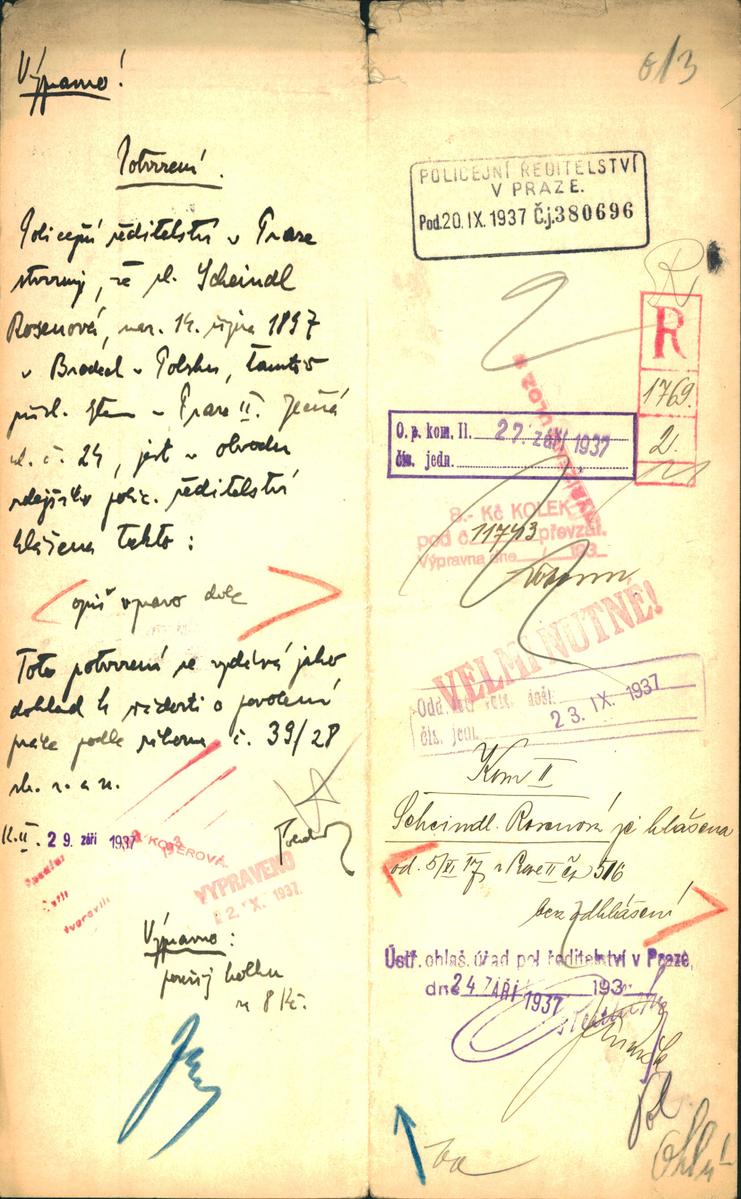 Výpravno!
Potvrzení.
Policejní ředitelství v Praze
stvrzuje, že sl. Scheindl
Rosenová, nar. 14. října 1897
v Brodech v Polsku, tamtéž
přísl. bytem v Praze II. Ječná
ul. č. 24, jest v obvodu
zdejšího polic. ředitelství
hlášena takto:
opiš vpravo dole
Toto potvrzení se vydává jako
doklad k žádosti o povolení
práce podle zákona č. 39/28
sb. z. a n.
K.II. 29. září 1937
KOTEROVÁ
VYPRAVENO
2. X. 1937.
Výpravno:
použij kolku
za 8 Kč.
013
POLICEJNÍ ŘEDITELSTVÍ
V PRAZE.
Pod. 20. IX. 1937 Č.j. 380696
R
R
1769.
2.
O. p. kom. II. 27. září 1937
čís. jedn.
8.- Kč KOLEK
pod č. 11743 převzal.
Výpravna dne 193
VELMI NUTNÉ!
došlo 23. IX. 1937
čís. jedn.
Kom II
Scheindl. Rosenová je hlášena
od 5/XI 17 v Praze II čp 516
bez odhlášení
Ústř. ohlaš. úřad pol. ředitelství v Praze,
dne 24 ZÁŘÍ 1937 193